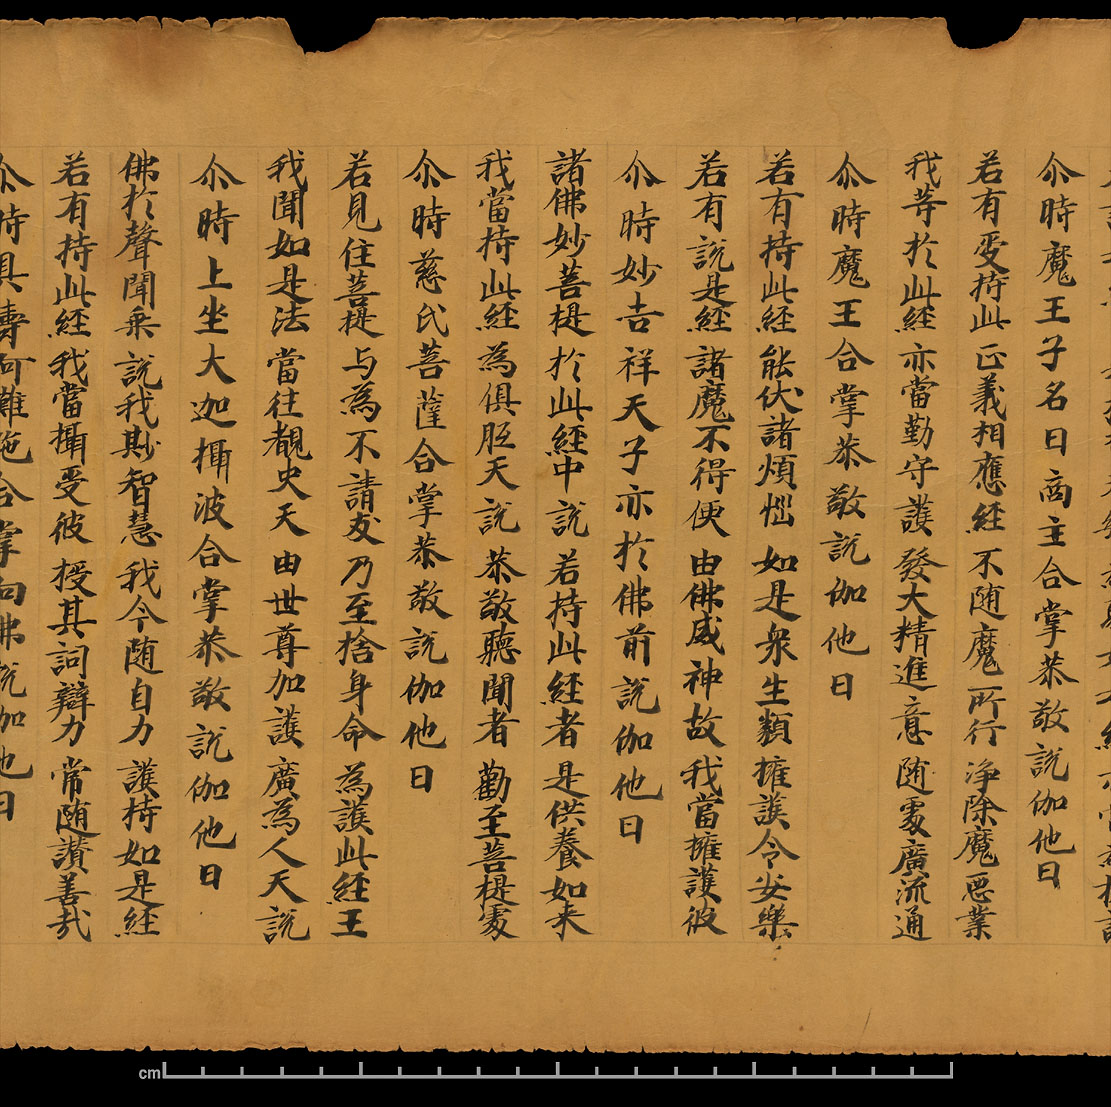 尒時魔王子名曰商主合掌恭敬說伽他曰
若有受持此 正義相應經 不随魔所行 净除魔惡業
我等於此經 亦當勤守護 發大精進意 随處廣流通
尒時魔王合掌恭敬說伽他曰
若有持此經 能伏諸煩惱 如是衆生類 擁護令安樂
若有說是經 諸魔不得便 由佛威神故 我當擁護彼
尒時妙吉祥天子亦於佛前說伽他曰
諸佛妙菩提 於此經中說 若持此經者 是供養如来
我當持此經 為俱胝天說 恭敬聽聞者 勸至菩提處
尒時慈氏菩薩合掌恭敬說伽他曰
若見住菩提 与為不請友 乃至捨身命 為護此經王
我聞如是法 當往覩史天 由世尊加護 廣為人天說
尒時上坐大迦攝波合掌恭敬說伽他曰
佛於聲聞乘 說我尠智慧 我今随自力 護持如是經
若有持此經 我當攝受彼 授其詞辯力 常随讃善哉
尒時具壽阿難陁合掌向佛說伽他曰
cm